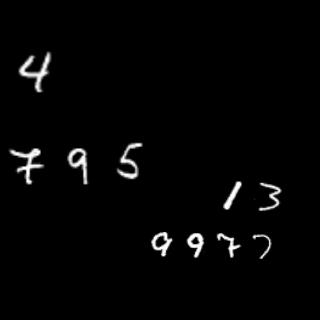 4
7 9 5
1 3
9 9 7 7